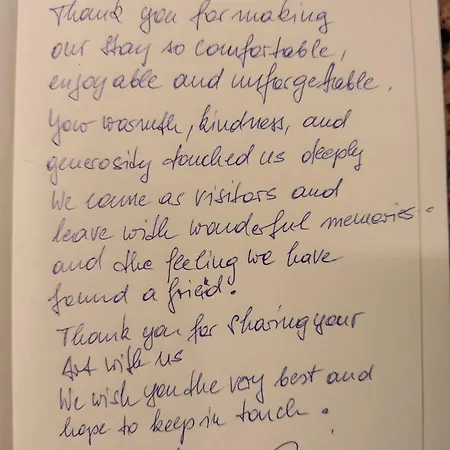 Thank you for making
our stay so comfortable,
enjoyable and unforgettable.
Your warmth, kindness, and
generosity touched us deeply
We came as visitors and
leave with wonderful memories
and the feeling we have
found a friend.
Thank you for sharing your
Art with us
We wish you the very best and
hope to keep in touch.